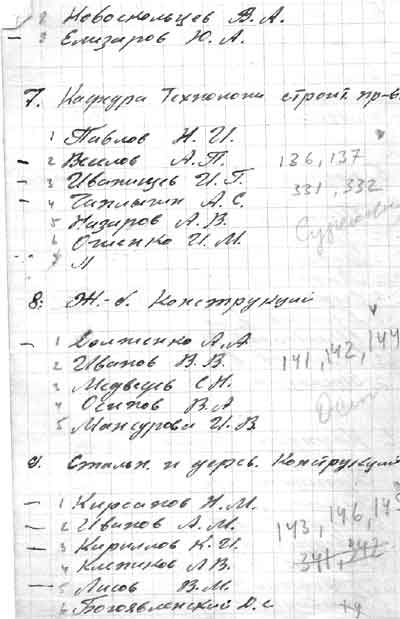 2 Новоскольцев В. А.
— 3 Елизаров Ю. А.
7. Кафедра Технологи строит. пр-в
1 Павлов Н. И.
— 2 Веилов А. П. 136, 137
— 3 Иванищев И. П. 331, 332
— 4 Чаплыгин А. С.
5 Назаров А. В.
6 Онщенко И. М.
8. Ж.-б. Конструкций
— 1 Долженко А. А
2 Иванов В. В. 141, 142, 144
3 Медведев С Н.
4 Осипов В. А
5 Мансурова И. В.
9. Стальн. и дерев. Конструкций
— 1 Кирсанов Н. М.
— 2 Иванов А. М. 143, 146,
— 3 Кириллов К. И.
4 Клепиков Л В. 341, 342
— 5 Лисов В. М.
6 Богоявленский Д. С